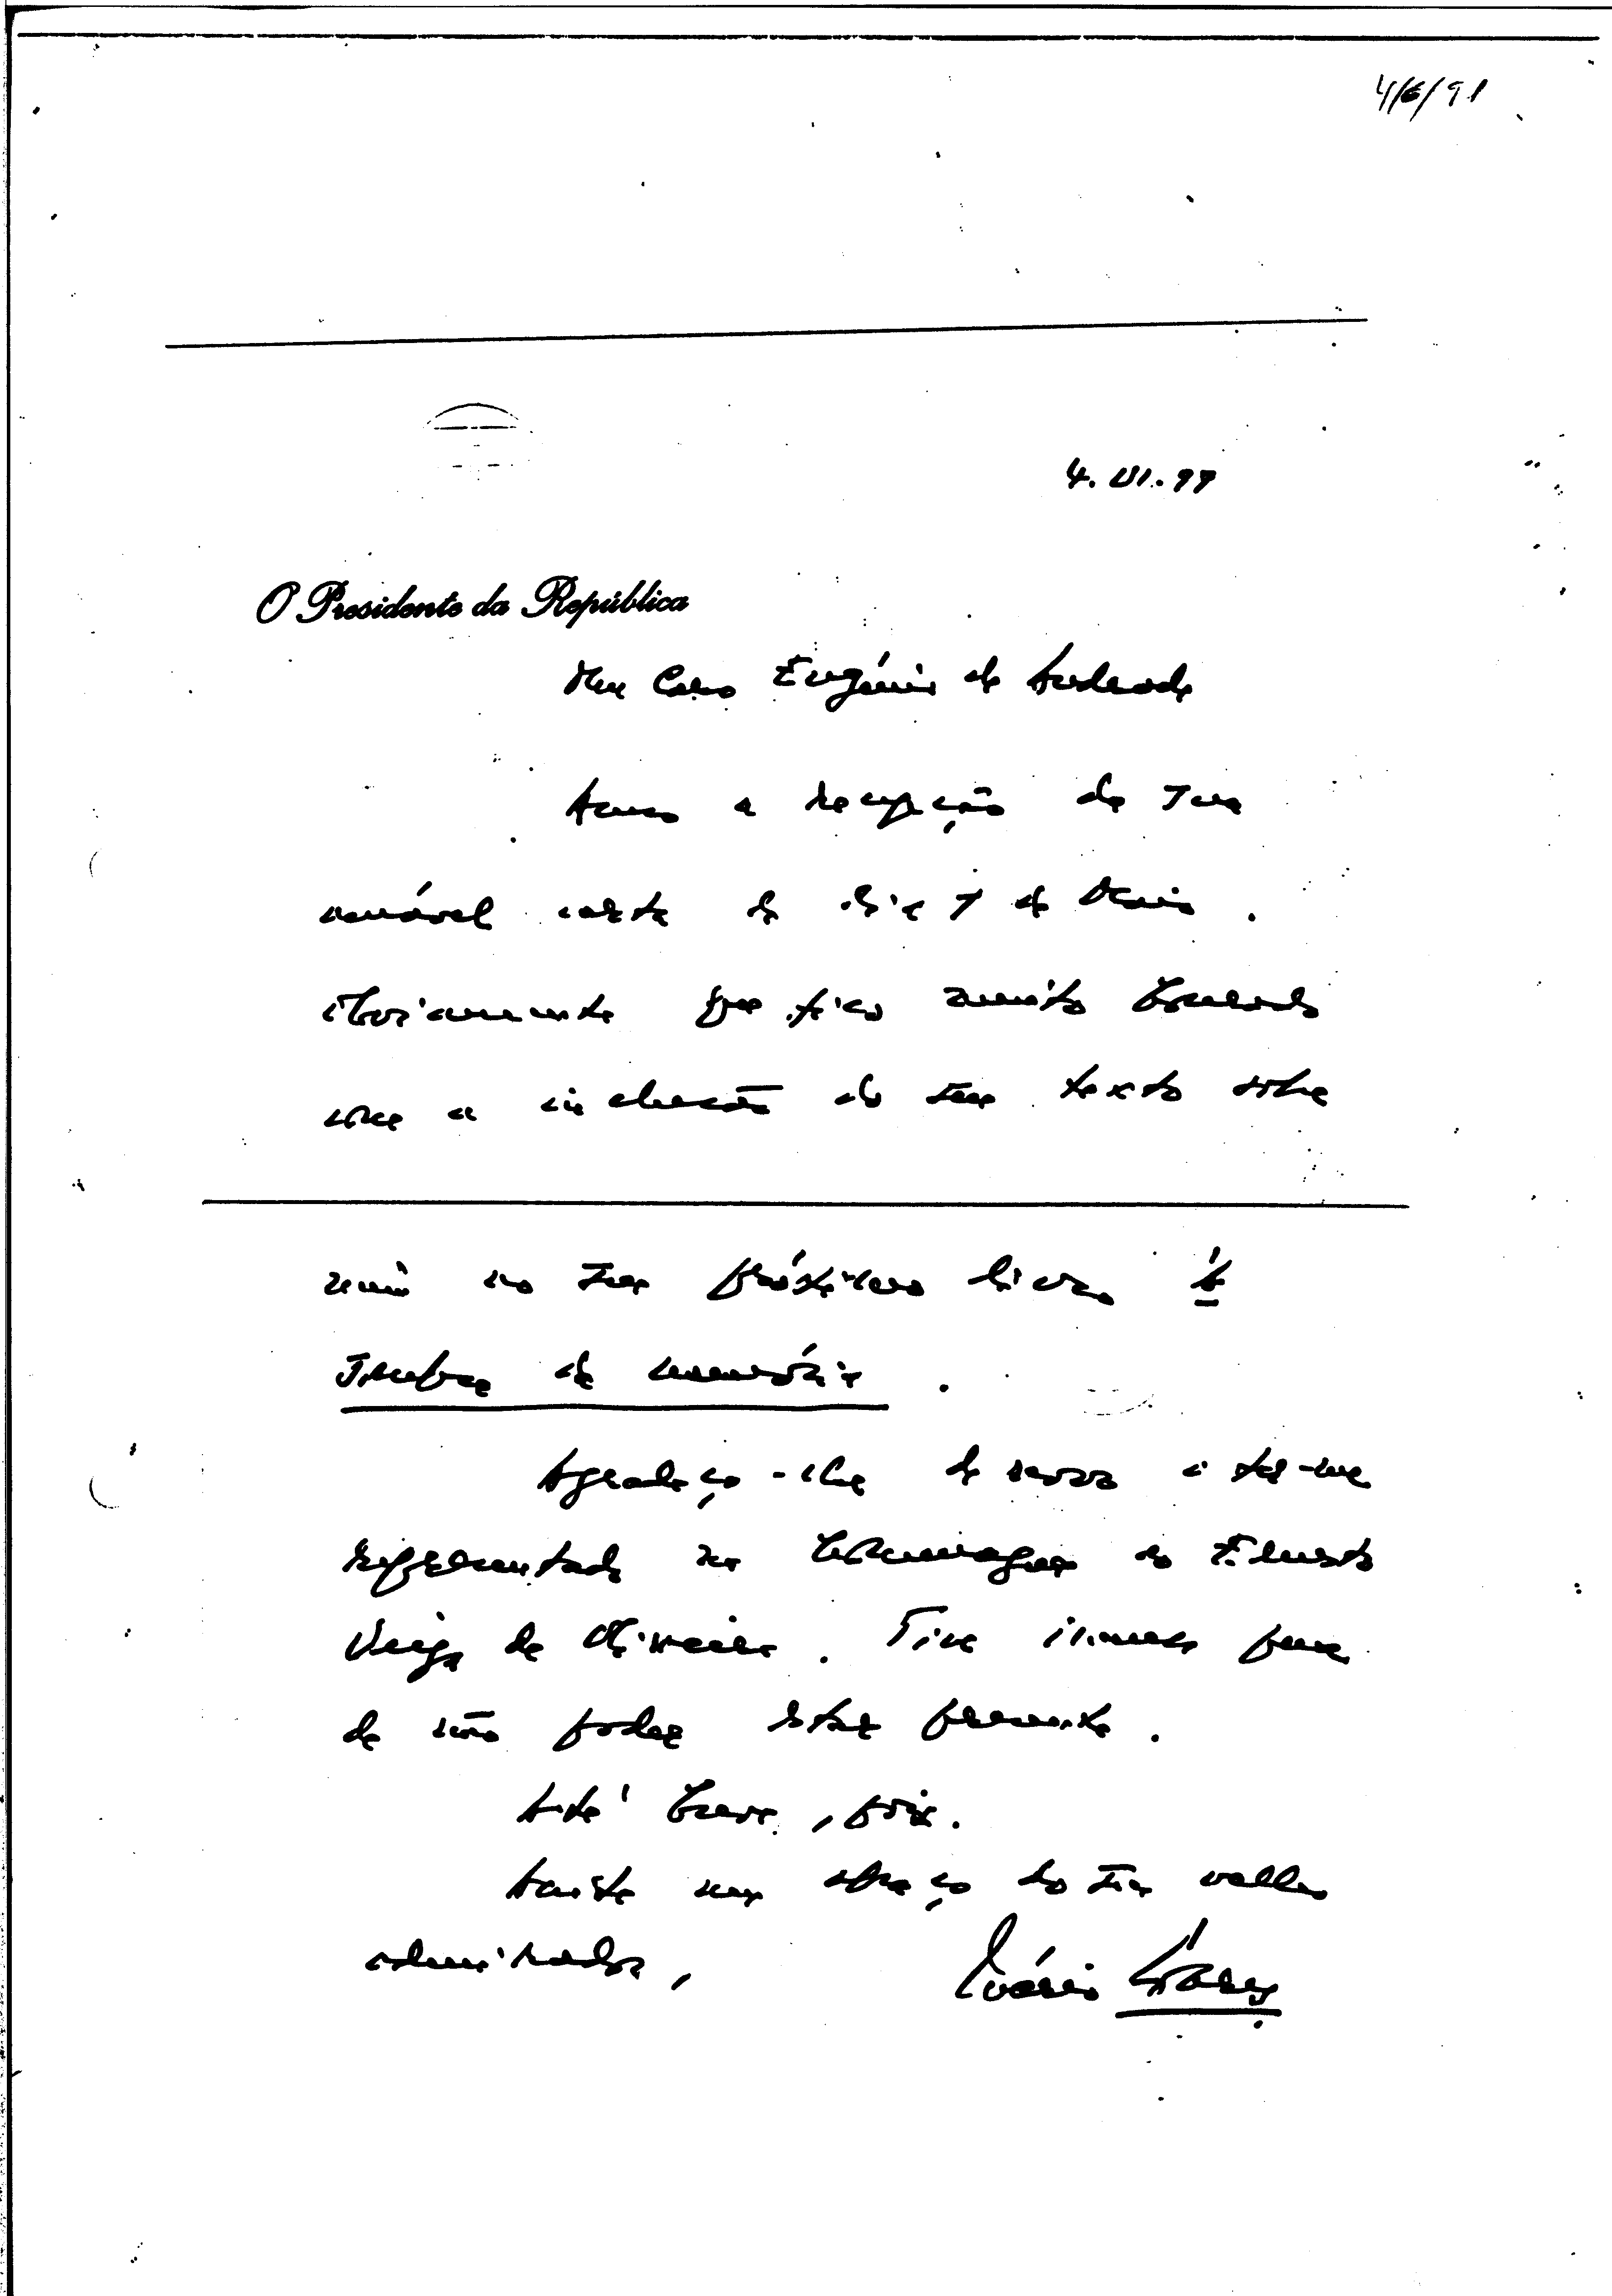 4/6/91
4. VI. 91
O Presidente da República
Meu Caro Eugénio de Andrade
Acuso a recepção da Tua
amável carta do dia 7 de Maio.
Obviamente que fico muito honrado
com a inclusão do teu texto sobre
mim no teu próximo livro À
Sombra da memória.
Agradeço-lhe de novo o ter-me
representado na homenagem ao Ernesto
Veiga de Oliveira. Tive imensa pena
de não poder estar presente.
Até breve, pois.
Aceite um abraço do teu velho
admirador,
Mário Soares